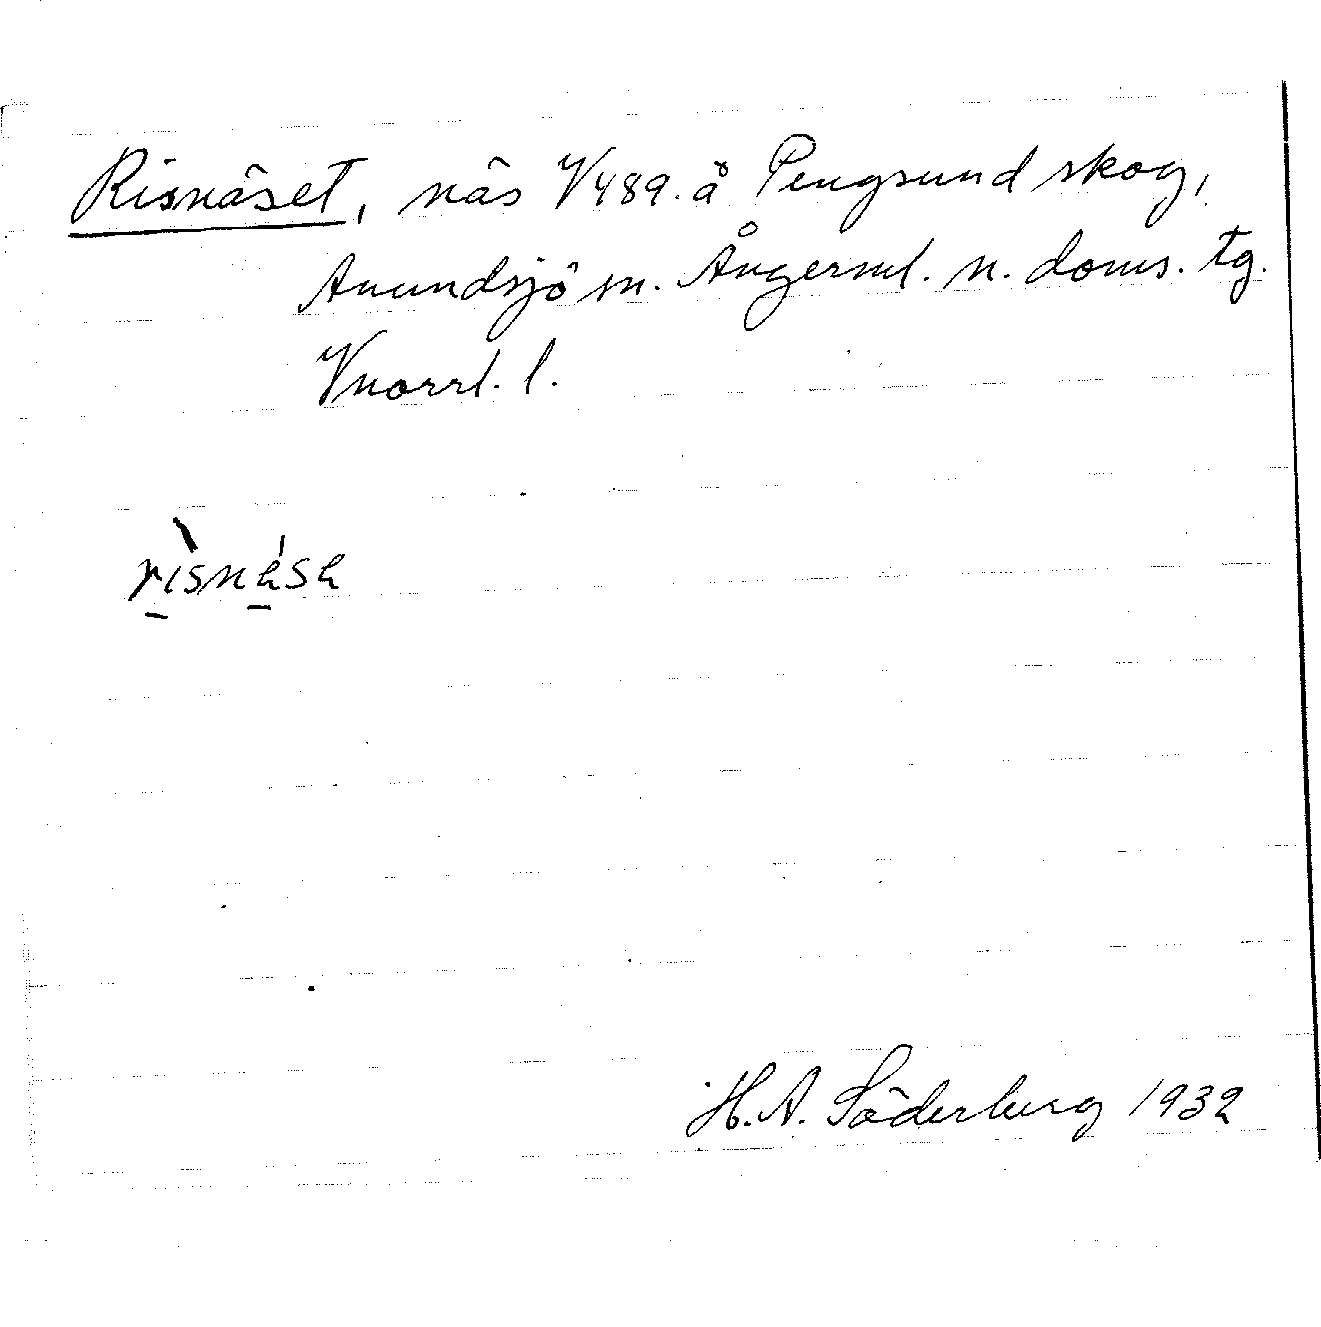 Risnäset, näs V489. å Pengsund skog,
Anundsjö sn. Ångerml. n. doms. tg.
Vnorrl. l.
rìsnése
H. A. Söderberg 1932